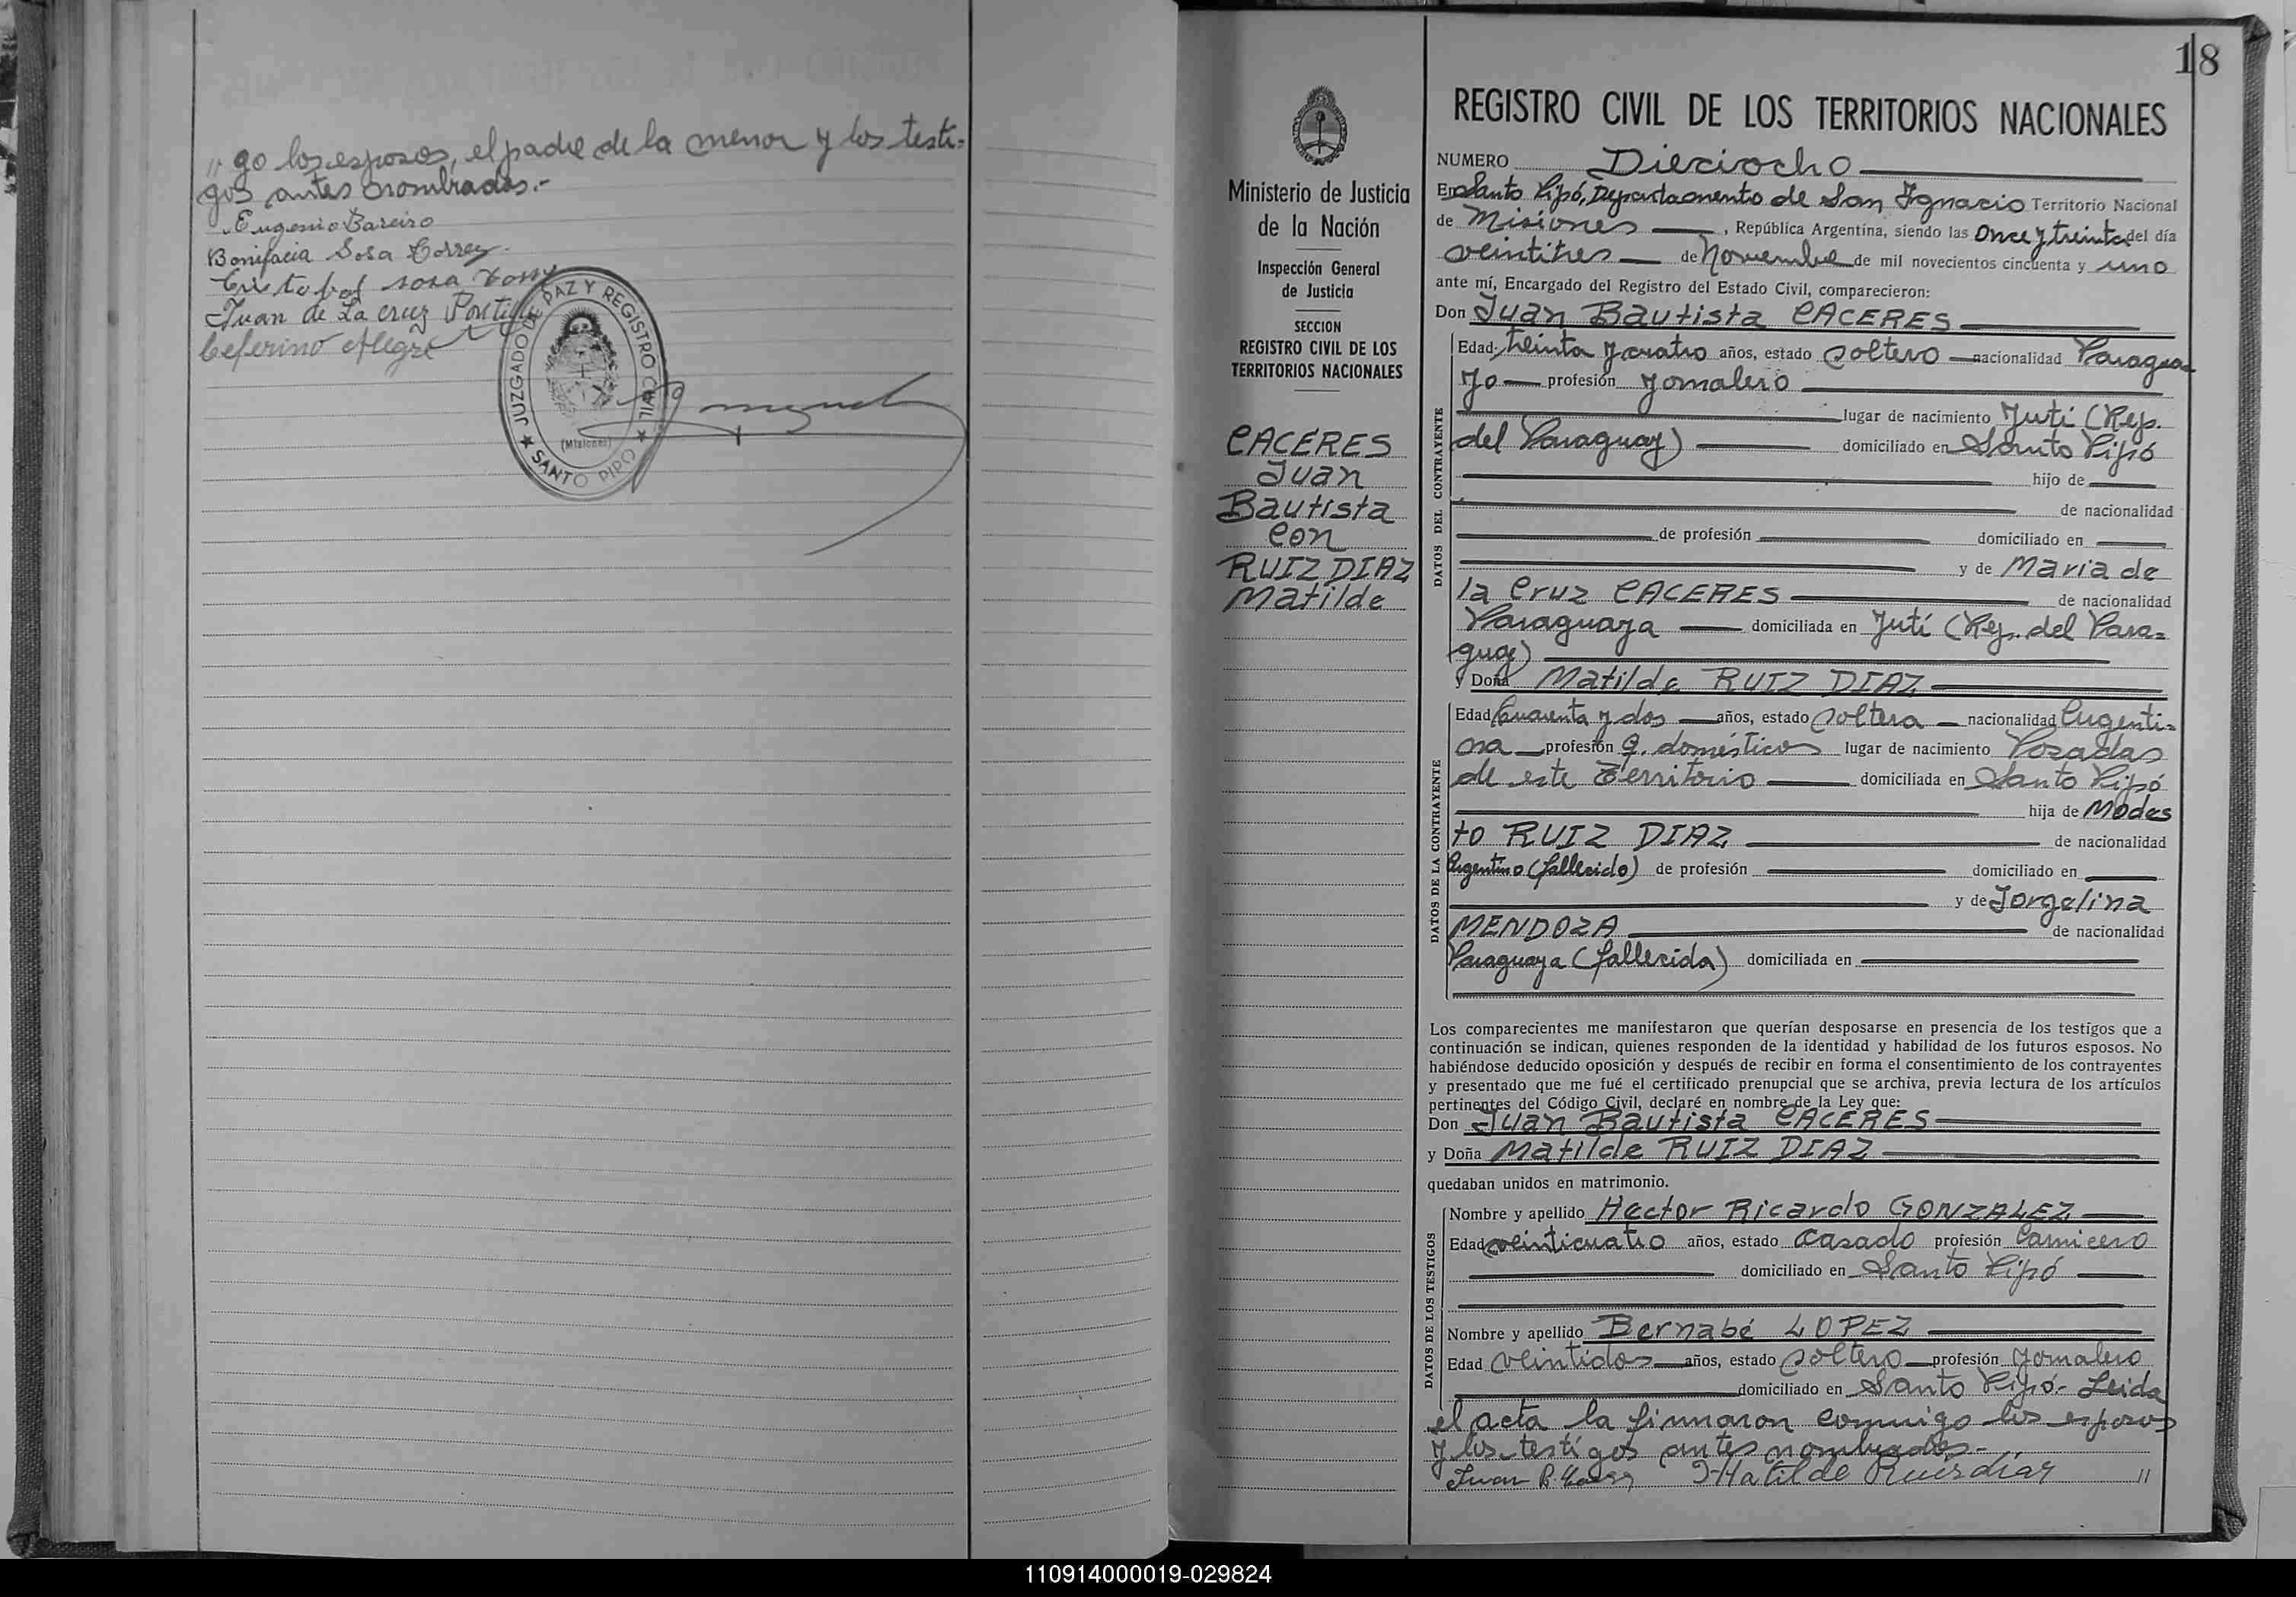 " go los esposos, el padre de la menor y los testi=
gos antes nombrados.-
Eugenio Bareiro
Bonifacia Sosa Torres
Cristobal sosa
Juan de La cruz Portillo
Ceferino Alegre
★ JUZGADO DE PAZ Y REGISTRO CIVIL ★
(Misiones)
SANTO PIPO
18
Ministerio de Justicia
de la Nación
Inspección General
de Justicia
SECCION
REGISTRO CIVIL DE LOS
TERRITORIOS NACIONALES
CACERES
Juan
Bautista
con
RUIZ DIAZ
Matilde
REGISTRO CIVIL DE LOS TERRITORIOS NACIONALES
NUMERO Dieciocho
En Santo Pipó, Departamento de San Ignacio Territorio Nacional
de Misiones, República Argentina, siendo las once y treinta del día
veintitres de Noviembre de mil novecientos cincuenta y uno
ante mí, Encargado del Registro del Estado Civil, comparecieron:
Don Juan Bautista CACERES
DATOS DEL CONTRAYENTE
Edad treinta y cuatro años, estado soltero nacionalidad Paragua=
yo profesión Jornalero
lugar de nacimiento Yuti (Rep.
del Paraguay) domiciliado en Santo Pipó
hijo de
de nacionalidad
de profesión domiciliado en
y de Maria de
la Cruz CACERES de nacionalidad
Paraguaya domiciliada en Yutí (Rep. del Para=
guay)
y Doña Matilde RUIZ DIAZ
DATOS DE LA CONTRAYENTE
Edad Cuarenta y dos años, estado soltera nacionalidad Argenti=
na profesión q. domésticos lugar de nacimiento Posadas
de este Territorio domiciliada en Santo Pipó
hija de Modes
to RUIZ DIAZ de nacionalidad
Argentino (fallecido) de profesión domiciliado en
y de Jorgelina
MENDOZA de nacionalidad
Paraguaya (fallecida) domiciliada en
Los comparecientes me manifestaron que querían desposarse en presencia de los testigos que a
continuación se indican, quienes responden de la identidad y habilidad de los futuros esposos. No
habiéndose deducido oposición y después de recibir en forma el consentimiento de los contrayentes
y presentado que me fué el certificado prenupcial que se archiva, previa lectura de los artículos
pertinentes del Código Civil, declaré en nombre de la Ley que:
Don Juan Bautista CACERES
y Doña Matilde RUIZ DIAZ
quedaban unidos en matrimonio.
DATOS DE LOS TESTIGOS
Nombre y apellido Hector Ricardo GONZALEZ
Edad veinticuatro años, estado Casado profesión Carnicero
domiciliado en Santo Pipó
Nombre y apellido Bernabé LOPEZ
Edad veintidos años, estado soltero profesión Jornalero
domiciliado en Santo Pipó.- Leida
el acta la firmaron conmigo los esposos
y los testigos antes nombrados.-
Juan B. Matilde Ruis dias "
110914000019-029824